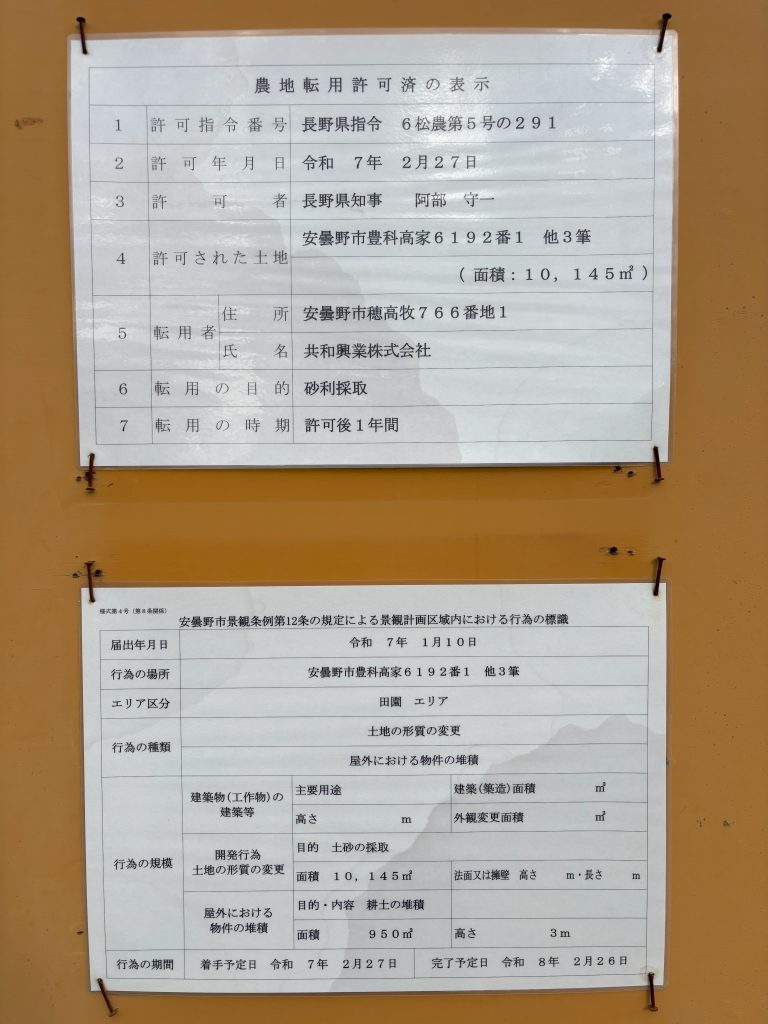 農地転用許可済の表示
1 許可指令番号 長野県指令 6松農第5号の291
2 許可年月日 令和 7年 2月27日
3 許可者 長野県知事 阿部 守一
4 許可された土地 安曇野市豊科高家6192番1 他3筆
(面積:10,145㎡)
5 転用者 住所 安曇野市穂高牧766番地1
氏名 共和興業株式会社
6 転用の目的 砂利採取
7 転用の時期 許可後1年間
様式第4号(第8条関係)
安曇野市景観条例第12条の規定による景観計画区域内における行為の標識
届出年月日 令和 7年 1月10日
行為の場所 安曇野市豊科高家6192番1 他3筆
エリア区分 田園 エリア
行為の種類 土地の形質の変更
屋外における物件の堆積
行為の規模 建築物(工作物)の建築等 主要用途 建築(築造)面積 ㎡
高さ m 外観変更面積 ㎡
開発行為 土地の形質の変更 目的 土砂の採取
面積 10,145㎡ 法面又は擁壁 高さ m・長さ m
屋外における物件の堆積 目的・内容 耕土の堆積
面積 950㎡ 高さ 3m
行為の期間 着手予定日 令和 7年 2月27日 完了予定日 令和 8年 2月26日